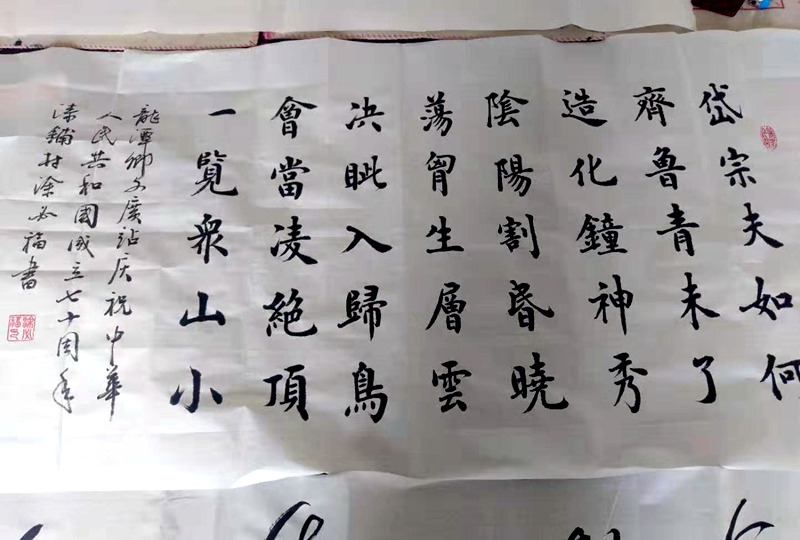 岱宗夫如何
齊魯青未了
造化鐘神秀
陰陽割昬曉
蕩胷生層雲
决眦入歸鳥
會當凌絶頂
一覽衆山小
龍潭鄉文廣站庆祝中華
人民共和國成立七十周年
鋪村涂必福書